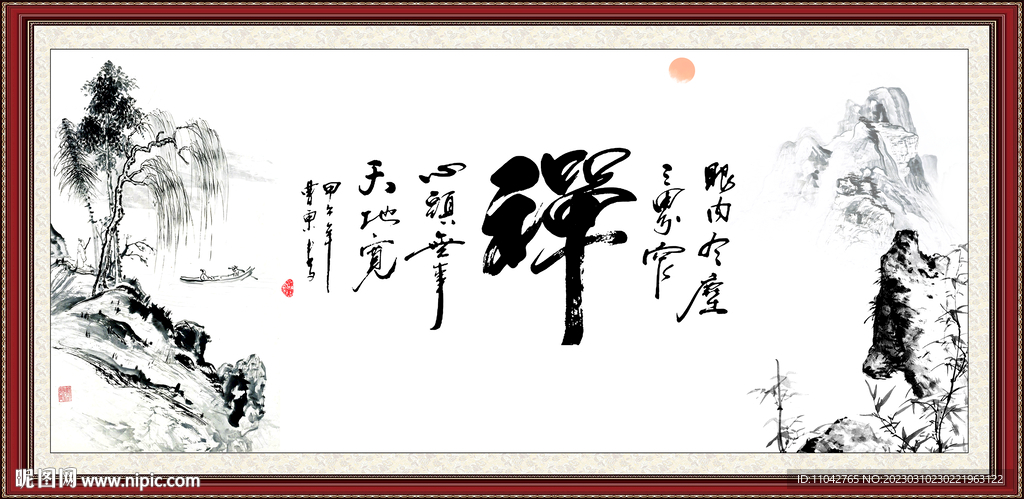 眼内有塵
三界窄
禪
心頭無事
天地寬
甲午年
昵图网 www.nipic.com
ID:11042765 NO:20230310230221963122